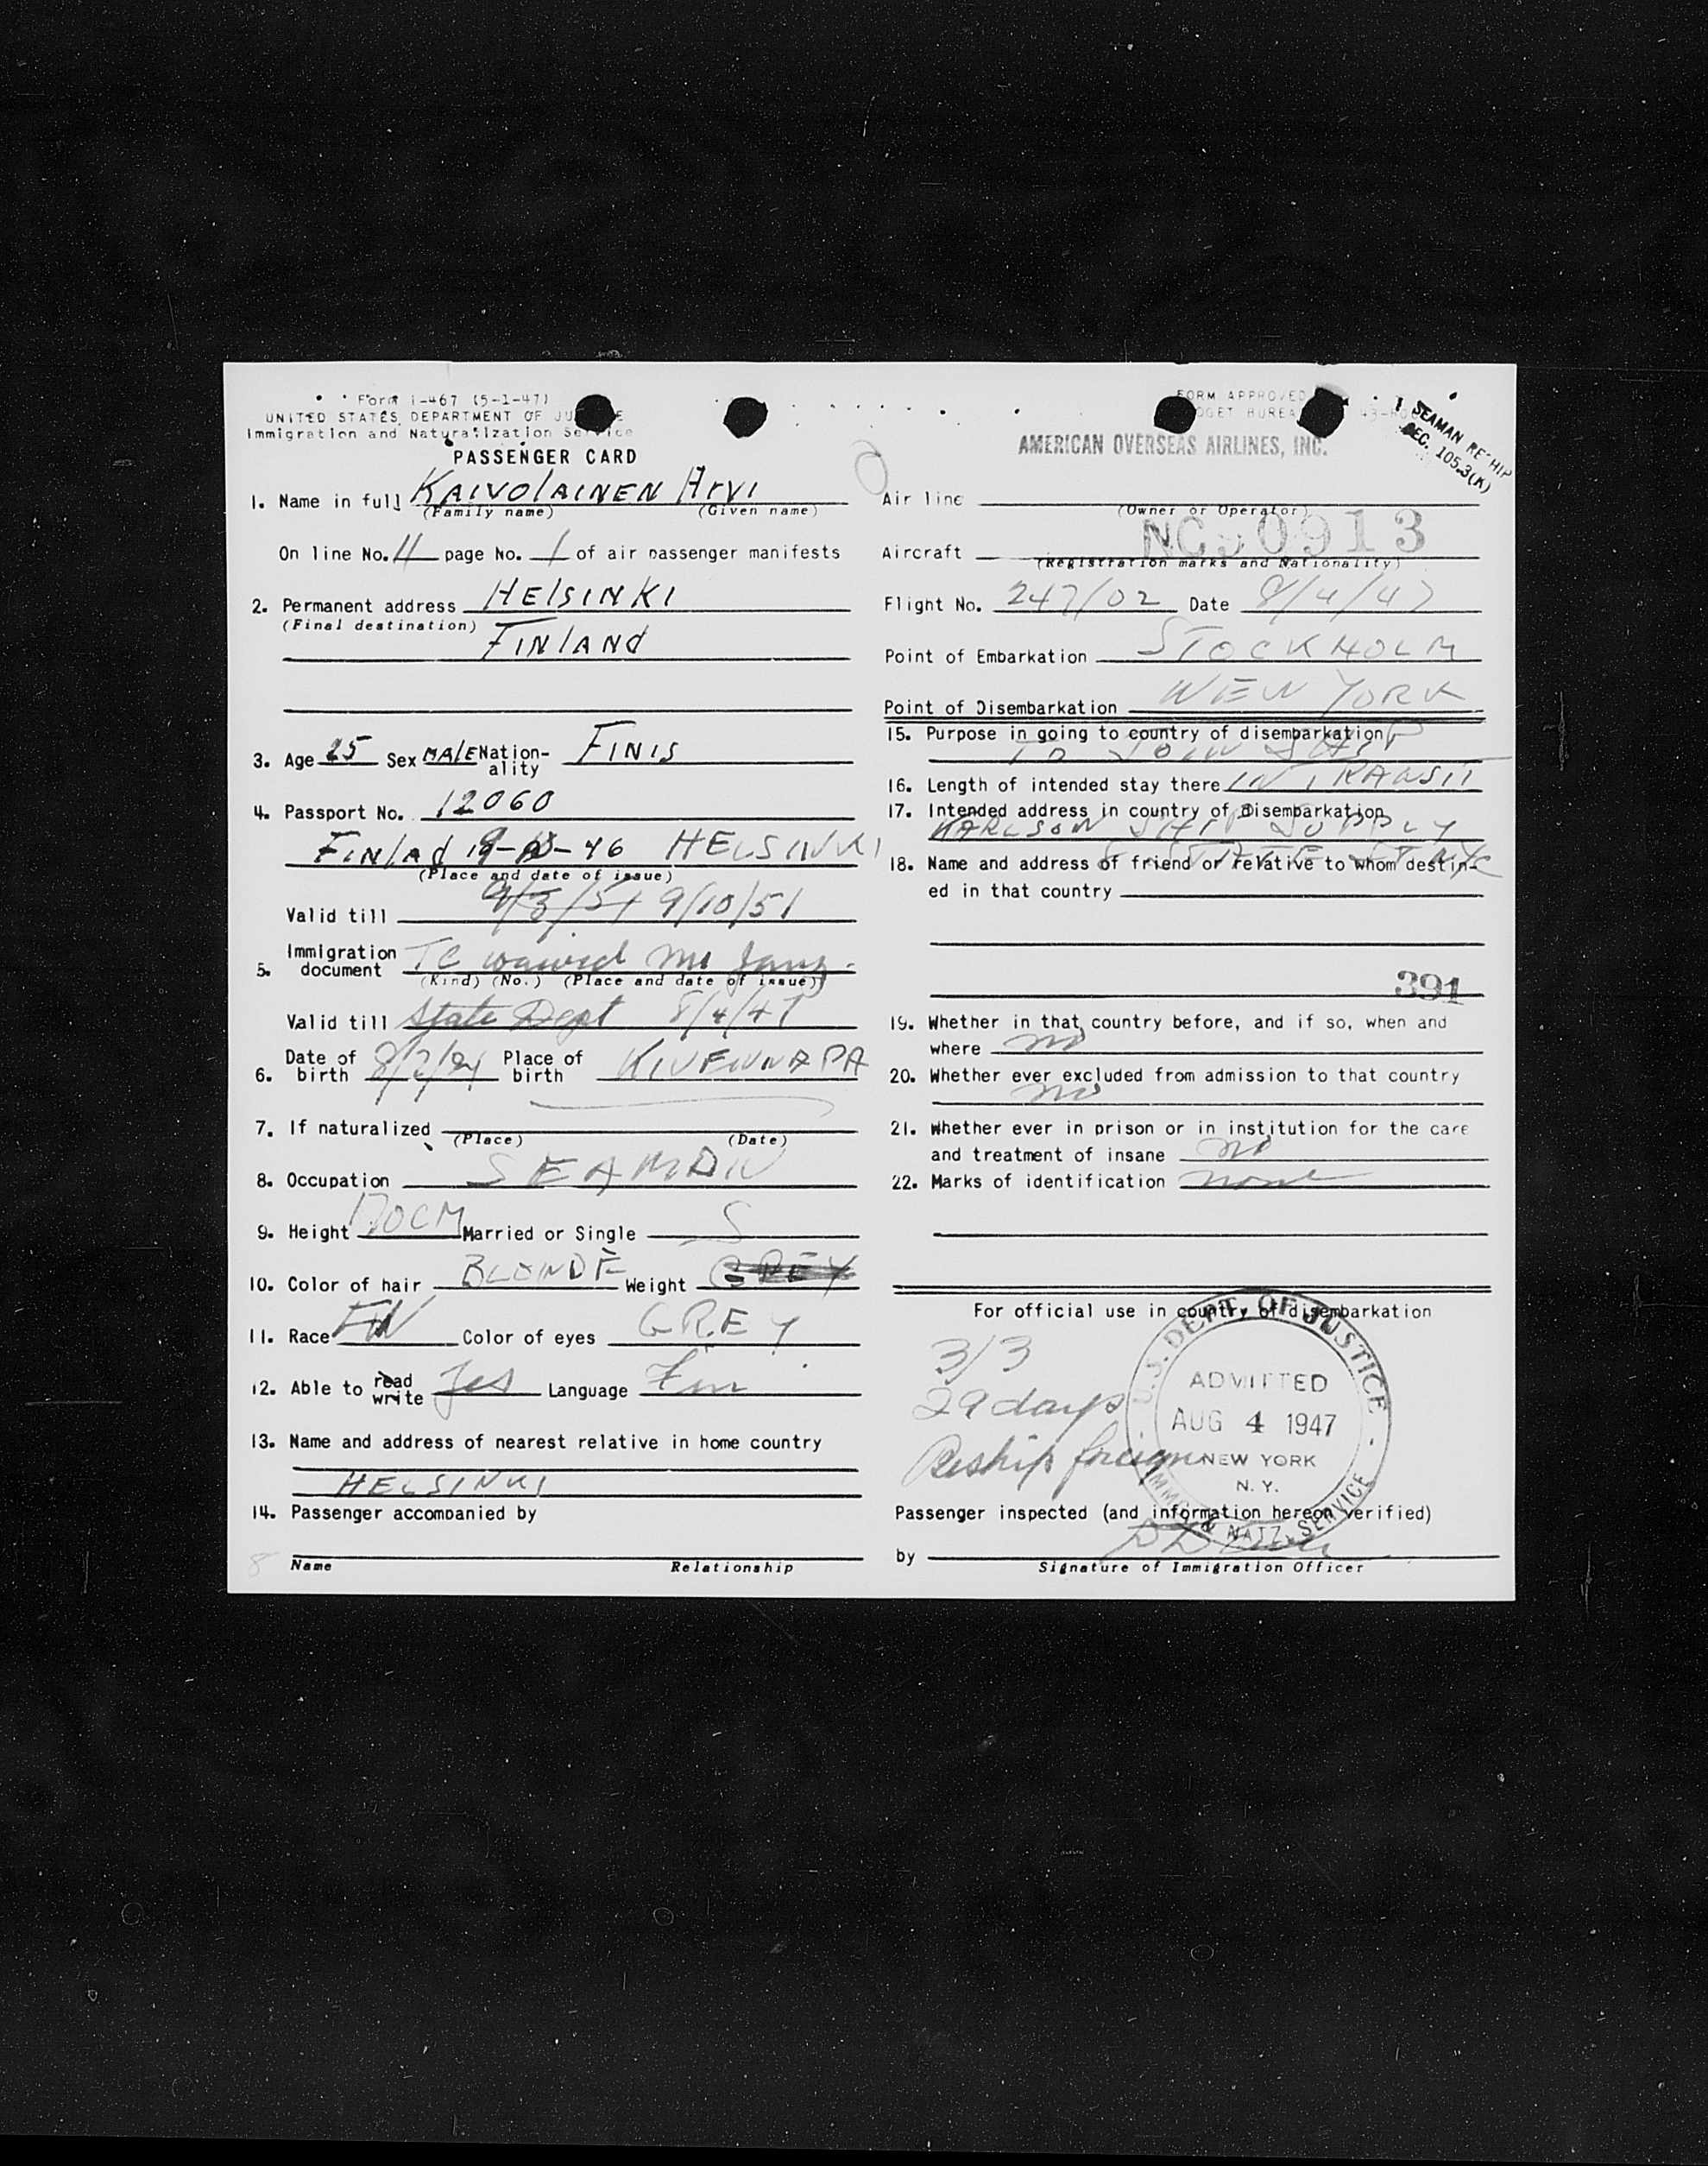 Form I-467 (5-1-47)
UNITED STATES DEPARTMENT OF JU E
Immigration and Naturalization Service
PASSENGER CARD
1. Name in full KAIVOLAINEN Arvi
(Family name) (Given name)
On line No. 11 page No. 1 of air passenger manifests
2. Permanent address HElSINKI
(Final destination)
FINlANd
3. Age 25 Sex MAlE Nation-ality FINIS
4. Passport No. 12060
FINlAd 46 HELSINKI
(Place and date of issue)
Valid till 9/3/51 9/10/51
5. Immigration document TC waived
(Kind) (No.) (Place and date of issue)
Valid till State Dept 8/4/47
6. Date of birth Place of birth KIVENNAPA
7. If naturalized
(Place) (Date)
8. Occupation SEAMAN
9. Height 170CM Married or Single S
10. Color of hair BLONDE Weight GREY
11. Race FIN Color of eyes GREY
12. Able to read write Yes Language Fin
13. Name and address of nearest relative in home country
HELSINKI
14. Passenger accompanied by
Name Relationship
FORM APPROVED
DGET BUREA
AMERICAN OVERSEAS AIRLINES, INC.
SEAMAN RESHIP
SEC. 105.3(K)
Air line
(Owner or Operator)
Aircraft NC90913
(Registration marks and Nationality)
Flight No. 247/02 Date 8/4/47
Point of Embarkation STOCKHOLM
Point of Disembarkation NEW YORK
15. Purpose in going to country of disembarkation
TO JOIN SHIP
16. Length of intended stay there IN TRANSIT
17. Intended address in country of disembarkation
KARLSON SHIP SUPPLY
8 STATE ST NYC
18. Name and address of friend or relative to whom destin-
ed in that country
391
19. Whether in that country before, and if so, when and
where no
20. Whether ever excluded from admission to that country
no
21. Whether ever in prison or in institution for the care
and treatment of insane no
22. Marks of identification none
For official use in country of disembarkation
3/3
29 days
Reship foreign
U.S. DEPT. OF JUSTICE
ADMITTED
AUG 4 1947
NEW YORK
N.Y.
IMMIG. & NATZ. SERVICE
Passenger inspected (and information hereon verified)
by
Signature of Immigration Officer